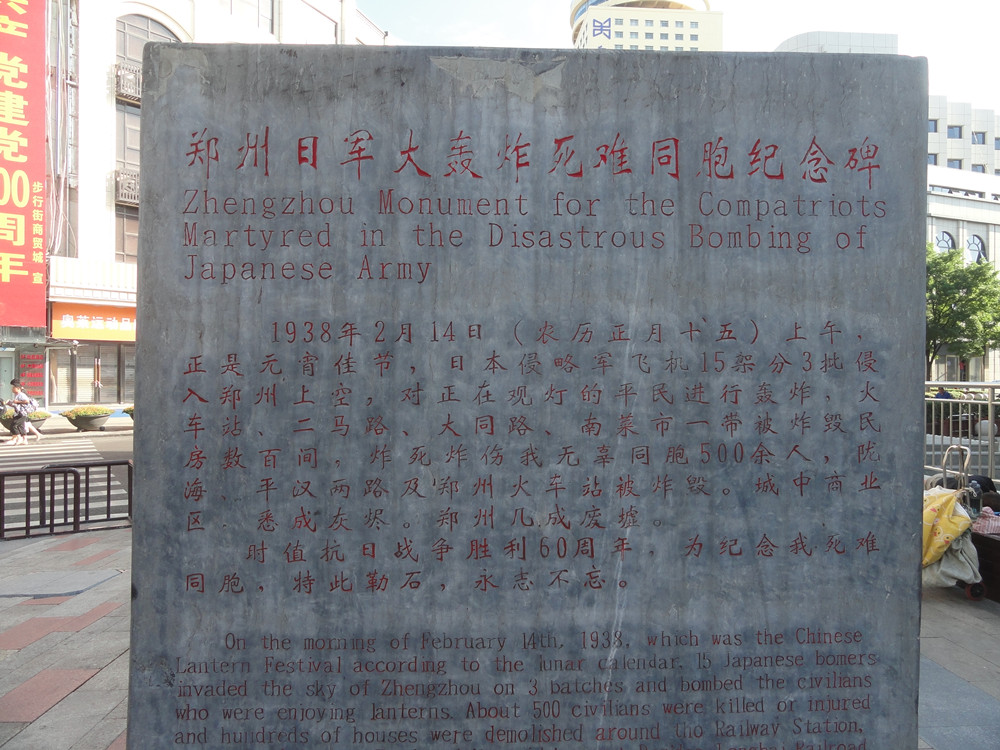 共产党建党100周年
步行街商贸城 宣
郑州日军大轰炸死难同胞纪念碑
Zhengzhou Monument for the Compatriots
Martyred in the Disastrous Bombing of
Japanese Army
1938年2月14日（农历正月十五）上午，
正是元宵佳节，日本侵略军飞机15架分3批侵
入郑州上空，对正在观灯的平民进行轰炸，火
车站、二马路、大同路、南菜市一带被炸毁民
房数百间，炸死炸伤我无辜同胞500余人，陇
海、平汉两路及郑州火车站被炸毁。城中商业
区，悉成灰烬。郑州几成废墟。
时值抗日战争胜利60周年，为纪念我死难
同胞，特此勒石，永志不忘。
On the morning of February 14th, 1938, which was the Chinese
Lantern Festival according to the lunar calendar, 15 Japanese bomers
invaded the sky of Zhengzhou on 3 batches and bombed the civilians
who were enjoying lanterns. About 500 civilians were killed or injured
and hundreds of houses were demolished around the Railway Station,